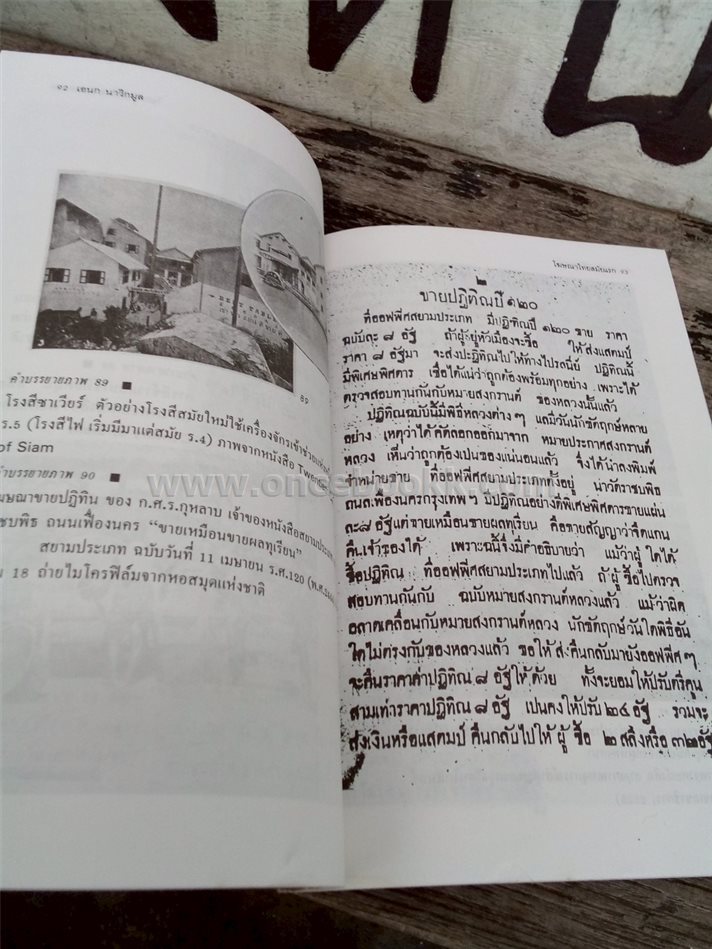 92 เอนก นาวิกมูล
89
คำบรรยายภาพ 89
โรงสีซาเวียร์ ตัวอย่างโรงสีสมัยใหม่ใช้เครื่องจักรเข้าช่วย
ร.5 (โรงสีไฟ เริ่มมีมาแต่สมัย ร.4) ภาพจากหนังสือ Twen
of Siam
คำบรรยายภาพ 90
ฆษณาขายปฏิทิน ของ ก.ศ.ร.กุหลาบ เจ้าของหนังสือสยามประเภท
ถนนเฟื่องนคร "ขายเหมือนขายผลทุเรียน"
สยามประเภท ฉบับวันที่ 11 เมษายน ร.ศ.120
18 ถ่ายไมโครฟิล์มจากหอสมุดแห่งชาติ
โฆษณาไทยสมัยแรก 93
๒
ขายปฏิทิณปี ๑๒๐
ที่ออฟฟิศสยามประเภท มีปฏิทิณปี ๑๒๐ ขาย ราคา
ฉบับละ ๘ อัฐ ถ้าผู้อยู่หัวเมืองจะซื้อ ให้ส่งแสตมป์
ราคา ๘ อัฐมา จะส่งปฏิทิณไปให้ทางไปรสนีย์ ปฏิทิณนี้
มีพิเศษพิศดาร เชื่อได้แน่ว่าถูกต้องพร้อมทุกอย่าง เพราะได้
ตรวจสอบทานกันกับหมายสงกรานต์ ของหลวงนั้นแล้ว
ปฏิทิณฉบับนี้มีพิธีหลวงต่าง ๆ แลมีวันนักขัตฤกษ์หลาย
อย่าง เหตุว่าได้คัดลอกออกมาจาก หมายประกาศสงกรานต์
หลวง เห็นว่าถูกต้องเป็นของแน่นอนแล้ว จึ่งได้ลงพิมพ์
จำหน่ายขาย ที่ออฟฟิศสยามประเภทตั้งอยู่ น่าวัดราชบพิธ
ถนนเฟื่องนครกรุงเทพ ๆ มีปฏิทิณอย่างดีพิเศษขายแผ่น
ละ ๘ อัฐ แต่ขายเหมือนขายผลทุเรียน คือขายสัญญาว่า
คืนเจ้าของได้ เพราะฉนี้จึ่งมีคำอธิบายว่า แม้ว่าผู้ใดได้
ซื้อปฏิทิณ ที่ออฟฟิศสยามประเภทไปแล้ว ถ้าผู้ซื้อไปตรวจ
สอบทานกันกับ ฉบับหมายสงกรานต์หลวงแล้ว แม้ว่าผิด
คลาดเคลื่อนกับหมายสงกรานต์หลวง นักขัตฤกษ์วันใดพิธีอัน
ใดไม่ตรงกับของหลวงแล้ว ขอให้ส่งคืนกลับมายังออฟฟิศ ๆ
จะคืนราคาค่าปฏิทิณ ๘ อัฐให้ด้วย ทั้งจะยอมให้ปรับตรีคูน
สามเท่าราคาปฏิทิณ ๘ อัฐ เปนคงให้ปรับ ๒๔ อัฐ รวมจะ
ส่งเงินหรือแสตมป์ คืนกลับไปให้ผู้ซื้อ ๒ สลึงคือ ๓๒ อัฐ